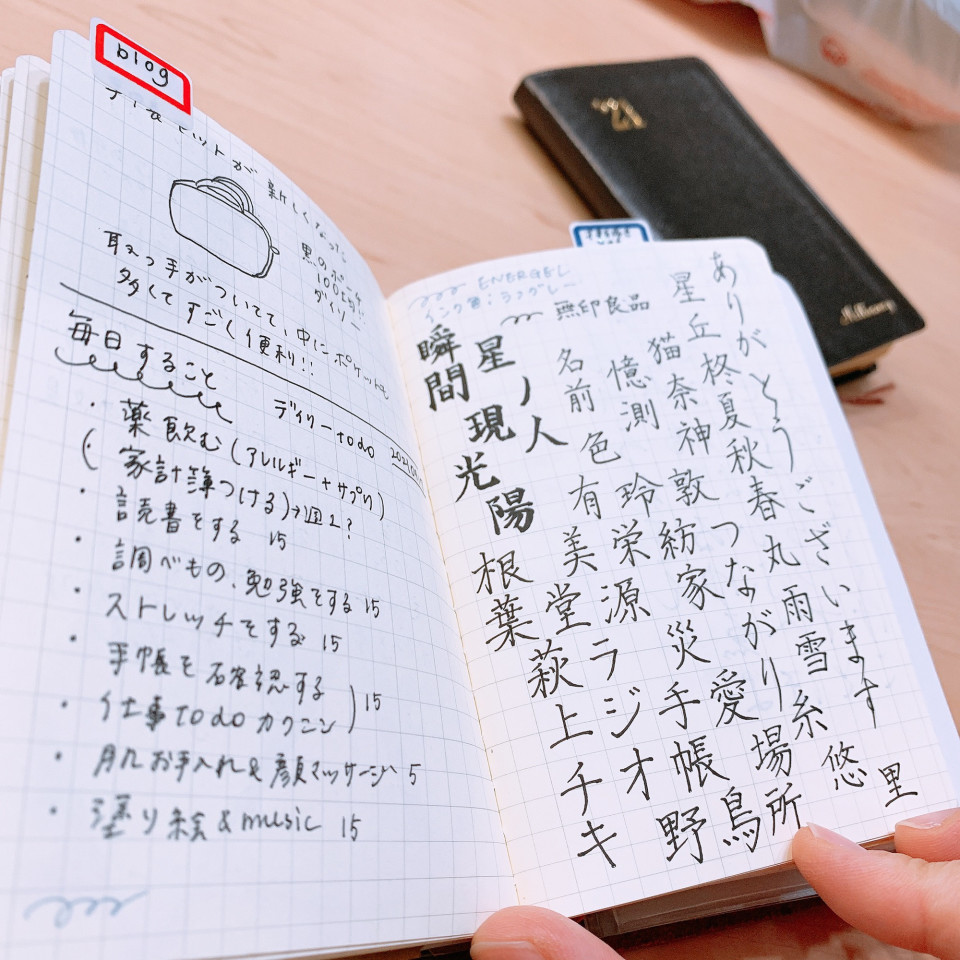 blog
セットが新しくなった
黒のポーチ
100モリ!!
ダイソー
取っ手がついてて、中にポケットも
多くてすごく便利!!
毎日すること
デイリーtodo
・薬飲む(アレルギー+サプリ)
(家計簿つける)→週1?
・読書をする 15
・調べもの、勉強をする 15
・ストレッチをする 15
・手帳を確認する
・仕事todoカクニン)15
・肌お手入れ&顔マッサージ 5
・塗り絵&music 15
ENERGEL
インク色:ラフグレー
無印良品
瞬間
星ノ人
現光陽
根葉
萩上チキ
名前
色
有美堂
ラジオ
憶測
玲栄源
猫奈神敦紡家災手帳
野鳥
星丘柊夏秋春丸雨雪糸
つながり
愛
場所
ありがとうございます
悠里
'21